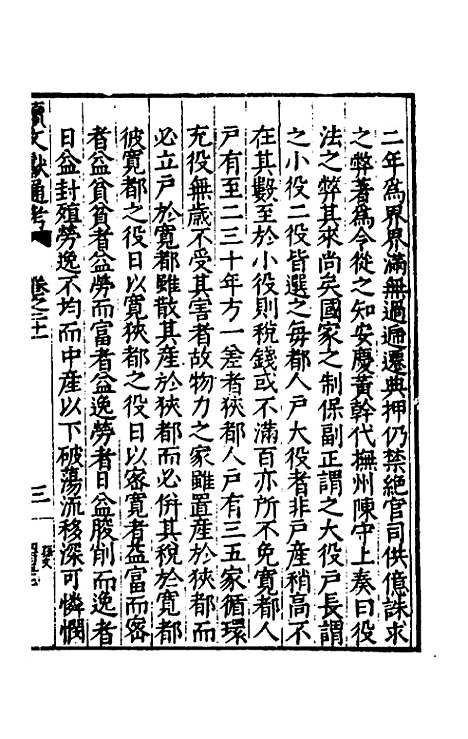 二年爲界界滿無過遍遷典押仍禁絕官司供億誅求
之弊著爲令從之知安慶黃幹代撫州陳守上奏曰役
法之弊其來尚矣國家之制保副正謂之大役戶長謂
之小役二役皆選之每都人戶大役者非戶產稍高不
在其數至於小役則稅錢或不滿百亦所不免寬都人
戶有至二三十年方一差者狹都人戶有三五家循環
充役無歲不受其害者故物力之家雖置產於狹都而
必立戶於寬都雖散其產於狹都而必併其稅於寬都
彼寬都之役日以寬狹都之役日以密寬者益富而密
者益貧貧者益勞而富者益逸勞者日益朘削而逸者
日益封殖勞逸不均而中產以下破蕩流移深可憐憫
續文獻通考 卷之二十 三